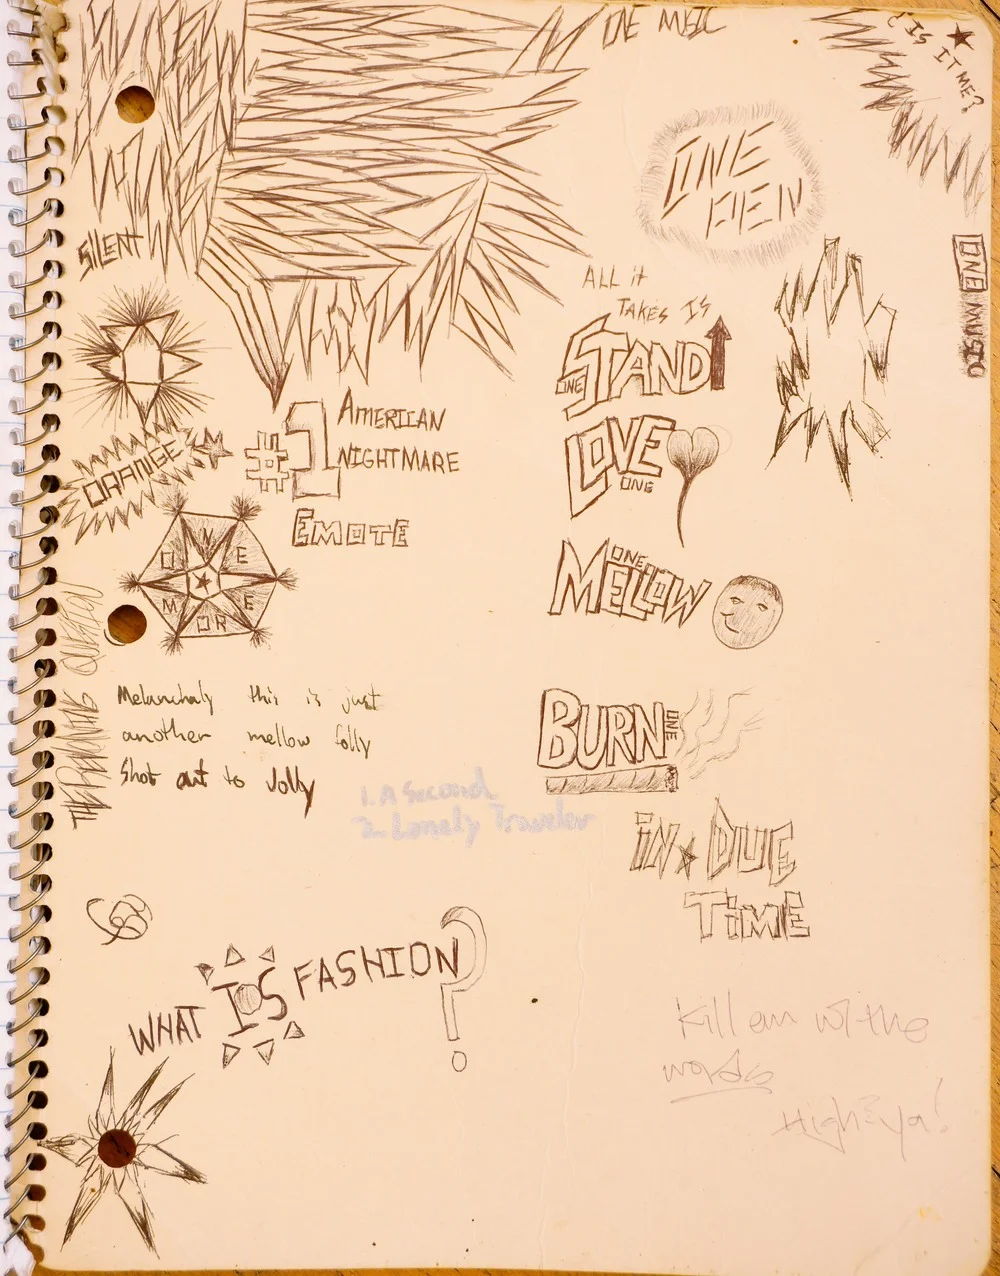 ONE MUSIC
IS IT ME?
SILENT
ONE
ONE MUSIC
ALL it
TAKES IS
ONE STAND
LOVE
ONE
#1 AMERICAN
NIGHTMARE
ORANGE
EMOTE
ONE
MORE
ONE
MELLOW
Melancholy this is just
another mellow folly
Shot out to Jolly
BURN ONE
1. A Second
2. Lonely Traveler
IN DUE
TIME
WHAT IS FASHION?
Kill em w/ the
words
High-ya!